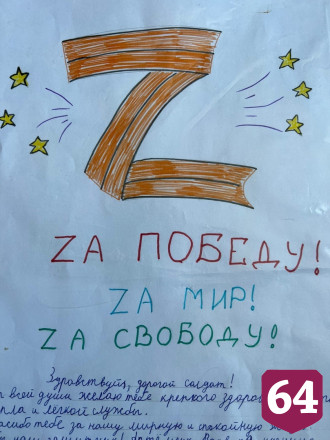 Z
ZА ПОБЕДУ!
ZА МИР!
ZА СВОБОДУ!
Здравствуй, дорогой солдат!
всей души желаю тебе крепкого
и легкой службы.
тебе за нашу мирную и спокойную
64